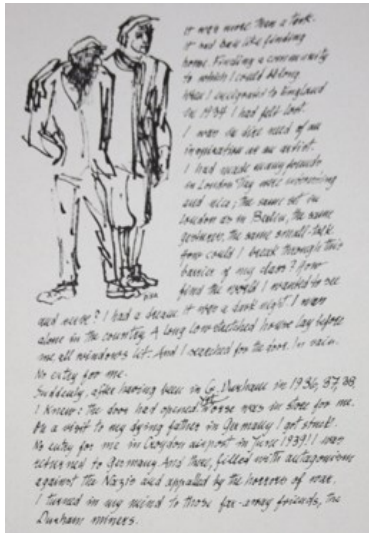 It was more than a task.
It had been like finding
home. Finding a community
to which I could belong
When I emigrated to England
in 1934 I had felt lost.
I was in dire need of an
inspiration as an artist.
I had made many friends
in London They were interesting
and nice; the same set in
London as in Berlin, the same
gestures, the same small-talk
How could I break through this
barrier of my class? How
find the world I wanted to see
and serve? I had a dream it was a dark night I was
alone in the country A long low-stretched house lay before
me all windows lit. And I searched for the door. In vain.
No entry for me.
Suddenly, after having been in Co. Durham in 1936, 37, 38,
I knew: the door had opened. Yet worse was in store for me.
On a visit to my dying father in Germany I got stuck!
No entry for me in Croydon airport in June 1939! I was
returned to Germany And there, filled with antagonism
against the Nazis and appalled by the horrors of war.
I turned in my mind to those far-away friends, the
Durham miners.